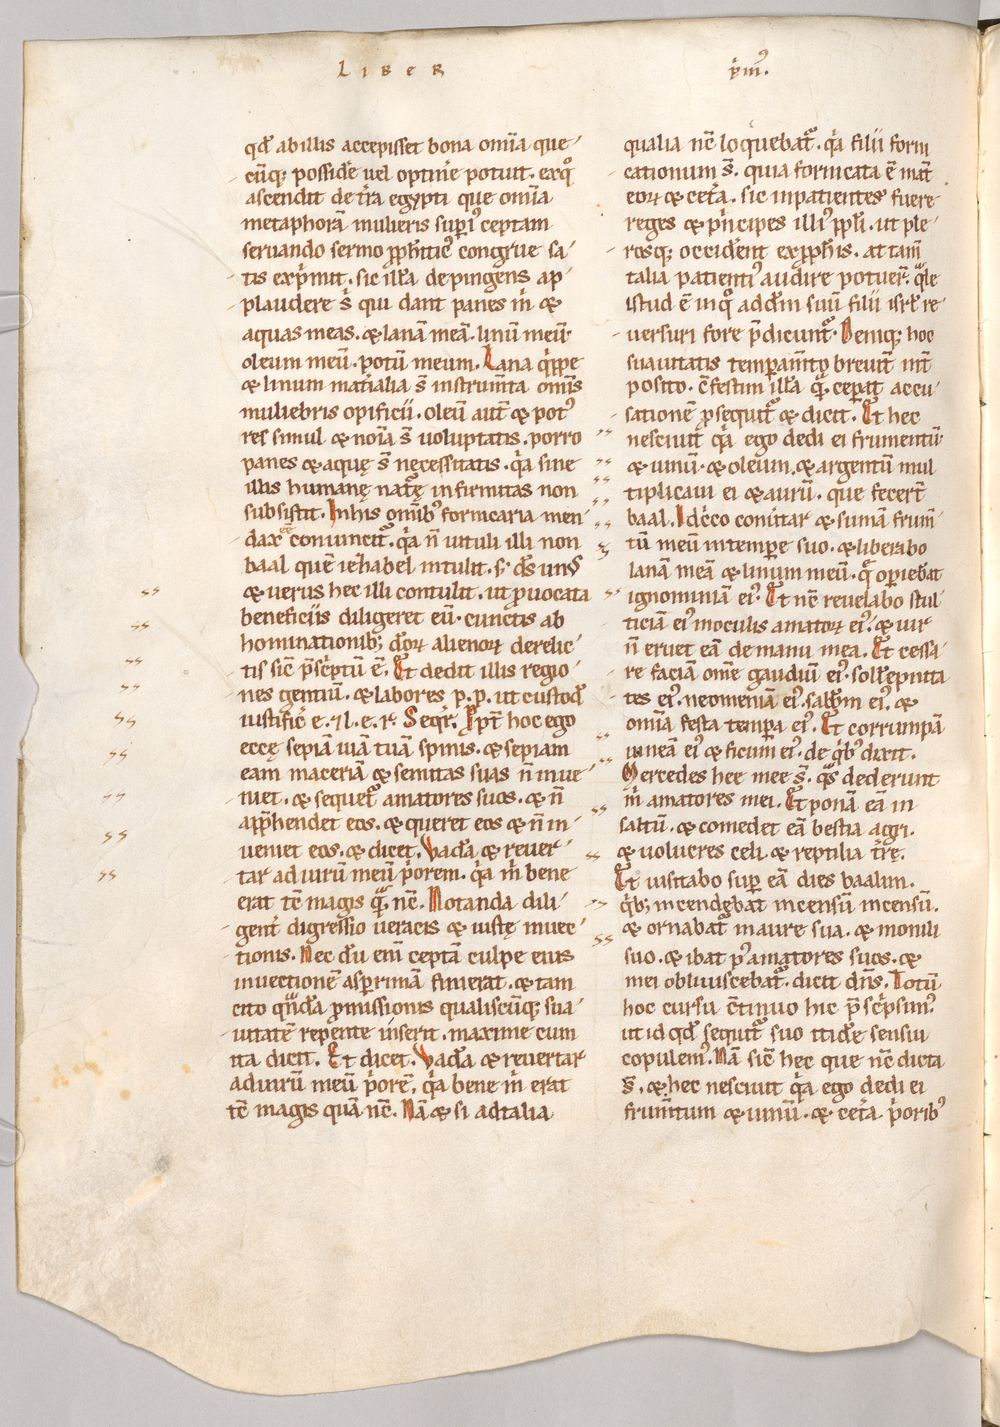 LIBER
p̄mꝰ.
qđ ab illis accepisset bona om̄ia que
cūq; possid̄e uel optine potuit. ex qͦ
ascendit de tr̄a egypti que om̄ia
metaphorā mulieris supiꝰ ceptam
seruando sermo ꝓph̄ticꝰ congrue sa
tis exp̄mit. sic illā depingens ap
plaudere s̄ qui dant panes m̄ &
aquas meas. & lanā meā. linū meū.
oleum meū. potū meum. Lana q̄ppe
& linum mat̄ialia s̄ instrum̄ta om̄is
muliebris opificii. oleū aut̄ & potꝰ
res simul & noīa s̄ uoluptatis. porro
panes & aquę s̄ necessitatis. q̄a sine
illis humanę nat̄ę infirmitas non
subsistit. In his om̄ibꝰ fornicaria men
dax eē conuincit᷑. q̄a n̄ uituli illi non
baal quē iezhabel intulit. s; d̄s unꝰ
& uerus hec illi contulit. ut ꝓuocata
beneficiis diligeret eū. cunctis ab
hominationib; d̄oꝝ alienoꝝ derelic
tis sic̄ p̄sc̄ptū ē. Et dedit illis regio
nes gentiū. & labores p. p. ut custod̄
iustific̄ e. & l. e. r. Seqr̄. Ppt̄ hoc ego
eccę sepiā uiā tuā spinis. & sepiam
eam maceriā & semitas suas n̄ inue
niet. & sequet᷑ amatores suos. & n̄
app̄hendet eos. & queret eos & n̄ in
ueniet eos. & dicet. Vadā & reuer
tar ad uirū meū p̄orem. q̄a m̄ bene
erat tē magis q̄ nē. Notanda dili
gent̄ digressio ueracis & iustę inuec
tionis. Nec dū enī ceptā culpe eius
inuectionē asp̄rimā finierat. & tam
cito q̄ndā ꝓmissionis qualiscūq; sua
uitatē repente inserit. maxime cum
ita dicit. Et dicet. Vadā & reuertar
ad uirū meū p̄orē. q̄a bene m̄ erat
tē magis quā nē. Nā & si ad talia
qualia nē loquebat᷑. q̄a filii forni
cationum s̄. quia fornicata ē mat̄
eoꝝ & cet̄a. sic inpatientes fuere
reges & p̄ncipes illiꝰ ppl̄i. ut ple
rosq; occiderent ex ꝓph̄is. at tam̄
talia patientiꝰ audire potuer̄. q̄le
istud ē in qͦ addm̄ suū filii isrl̄ re
uersuri fore p̄dicunt᷑. Deniq; hoc
suauitatis temp̄am̄tū breuit̄ int̄
posito. c̄festim illā q̄ cep̄at accu
sationē ꝓsequit᷑ & dicit. Et hec
nesciuit q̄a ego dedi ei frumentū
& uinū. & oleum. & argentū mul
tiplicaui ei & aurū. que fecer̄t
baal. Idc̄co conūtar & sumā frum̄
tū meū in temp̄e suo. & liberabo
lanā meā & linum meū. q̄ op̄iebat
ignominiā eiꝰ. Et nē reuelabo stul
ticiā eiꝰ in oculis amatoꝝ eiꝰ. & uir
n̄ eruet eā de manu mea. Et cessa
re faciā om̄e gaudiū eiꝰ. soll̄epnita
tes eiꝰ. neomeniā eiꝰ. sabb̄m eiꝰ. &
om̄ia festa temp̄a eiꝰ. Et corrumpā
uineā eiꝰ & ficum eiꝰ. de q̄bꝰ dixit.
Mercedes hee mee s̄. q̄s dederunt
m̄ amatores mei. Et ponā eā in
saltū. & comedet eā bestia agri.
& uolucres celi. & reptilia tr̄ę.
Et uisitabo sup̄ eā dies baalim.
q̄b; incendębat incensū incensū.
& ornabat᷑ in aure sua. & monili
suo. & ibat pꝰ amatores suos. &
mei obliuiscebat᷑. dicit dn̄s. Totū
hoc cursu c̄tinuo hic p̄sc̄psimꝰ.
ut id qđ sequit᷑ suo itidē sensui
copulemꝰ. Nā sic̄ hęc que nē dicta
s̄. & hec nesciuit q̄a ego dedi ei
frum̄tum & uinū. & cet̄a p̄oribꝰ